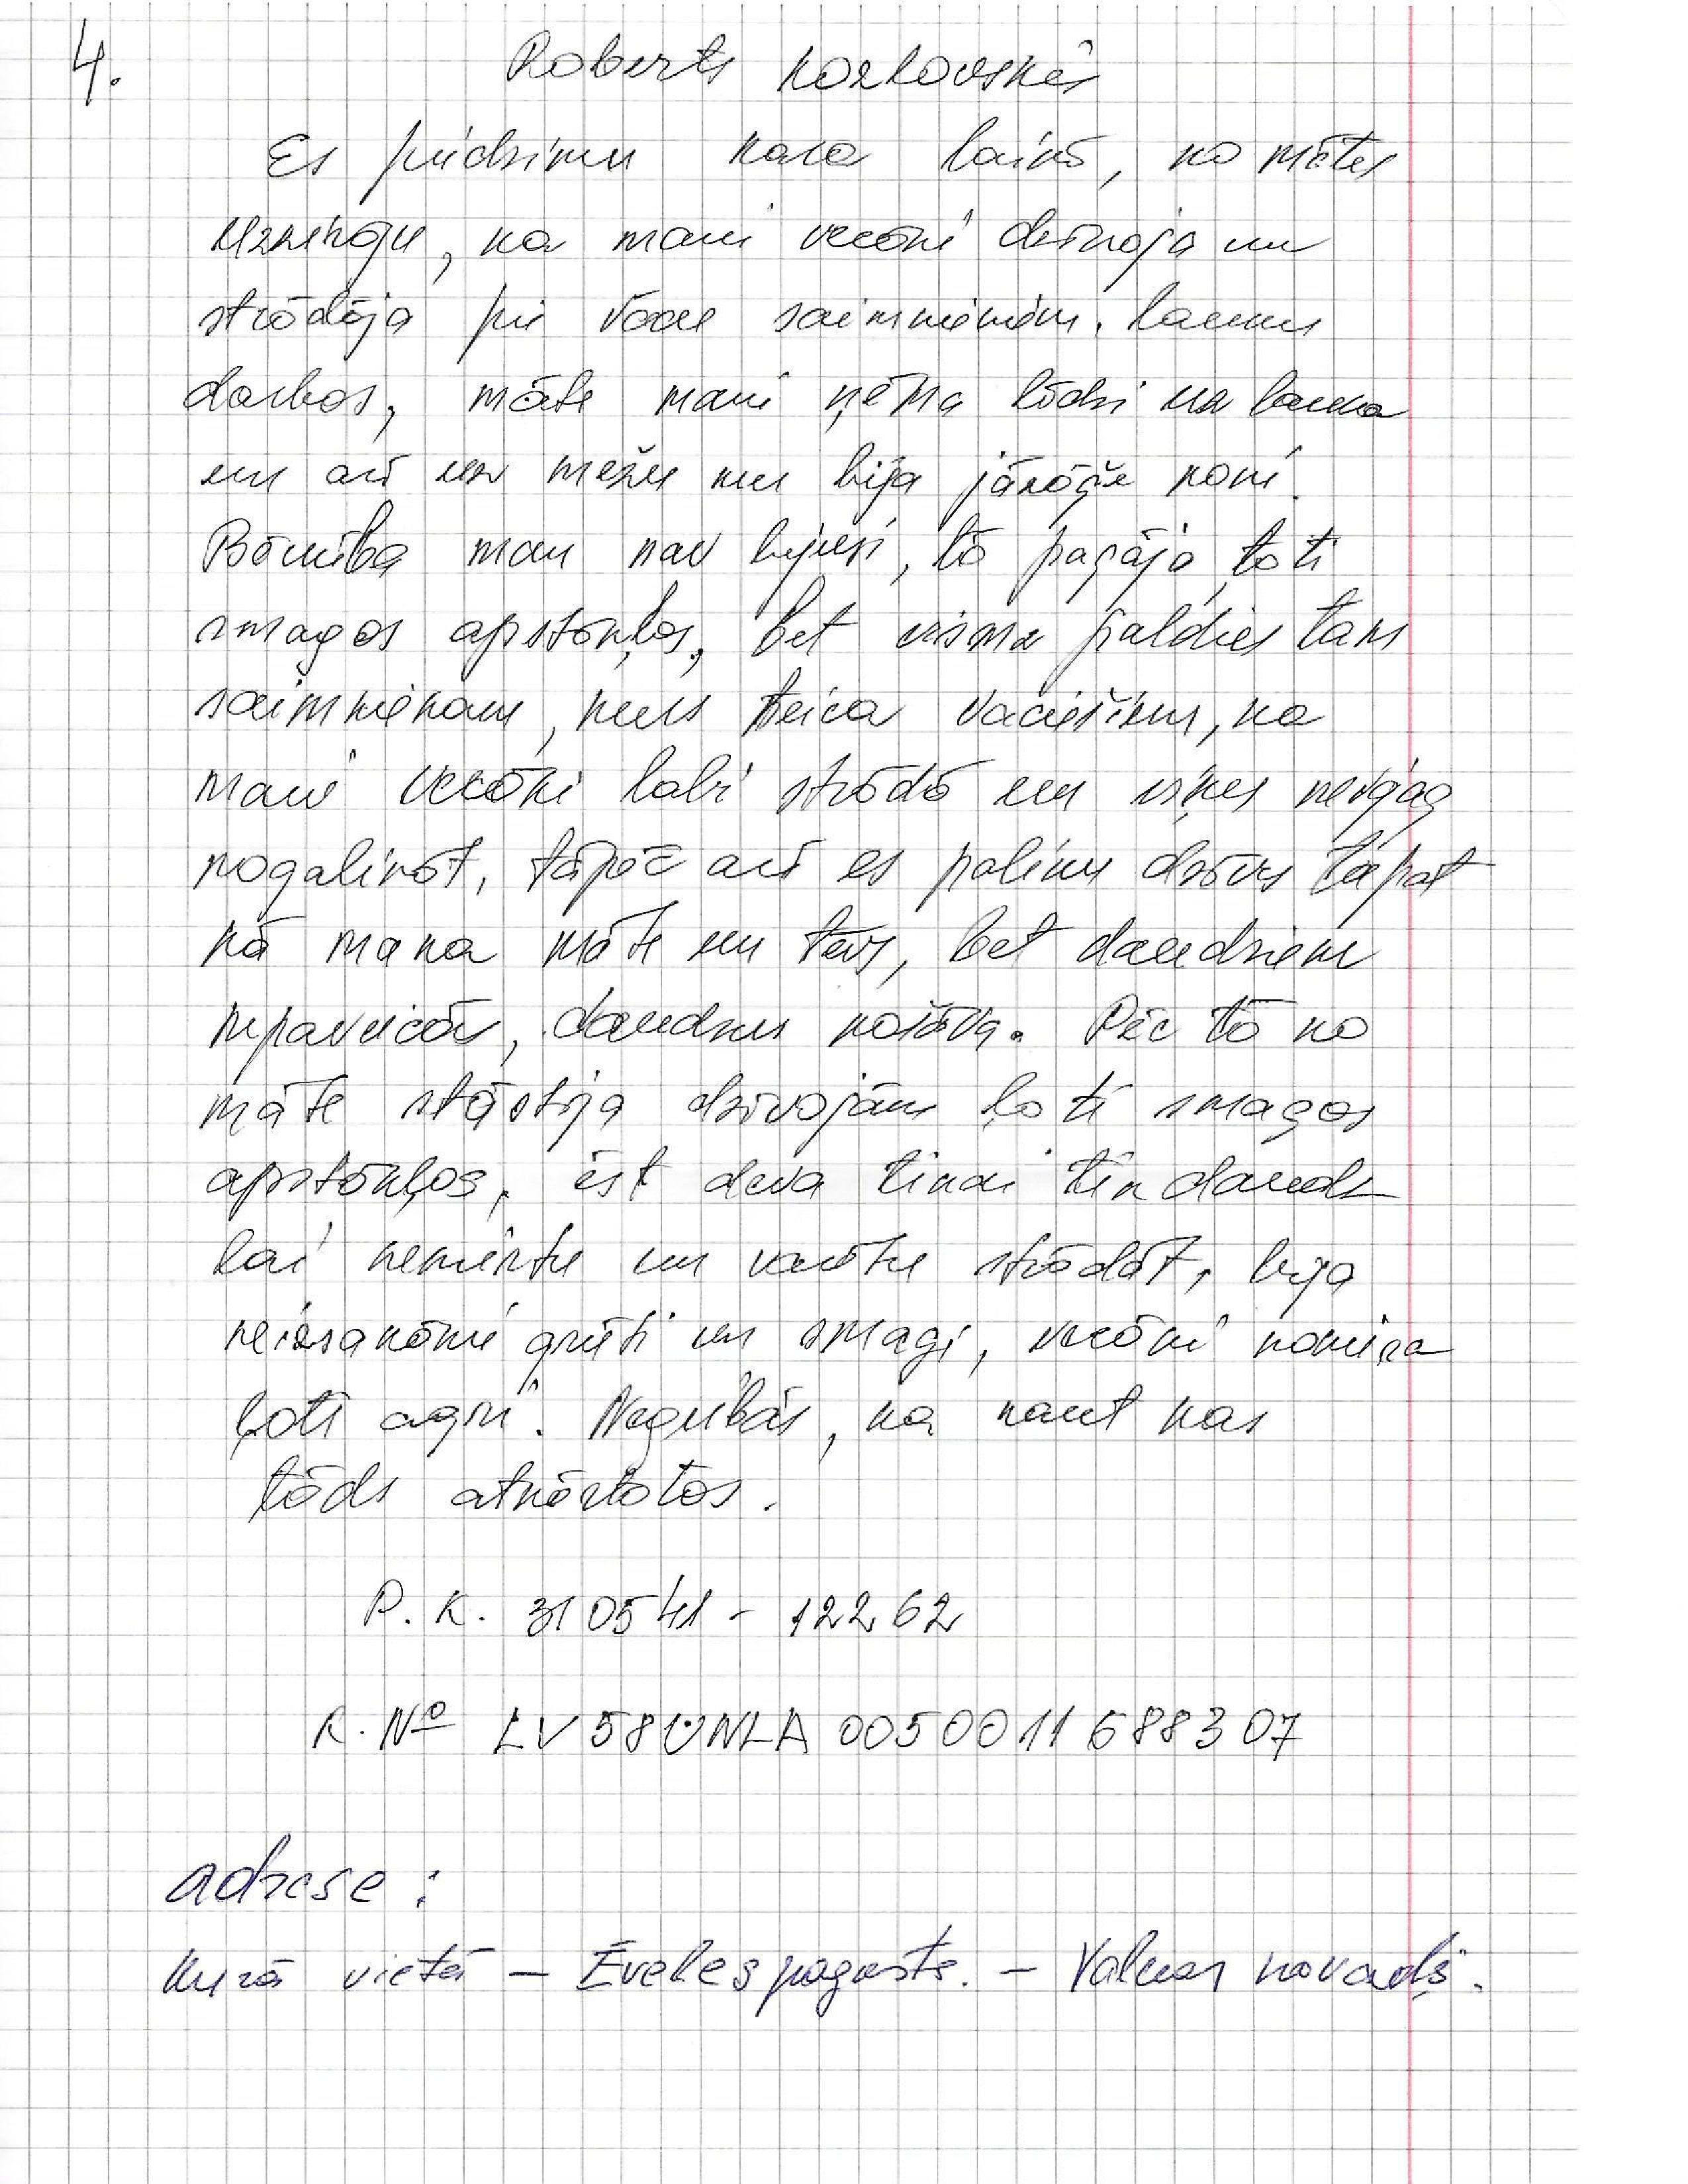 4.
Roberts Kozlovskis
Es piedzimu kara laikā, no mātes
uzzināju, ka mani vecāki dzīvoja un
strādāja pie vācu saimniekiem. lauku
darbos, māte mani ņēma līdzi uz lauka
un arī uz mežu kur bija jārāpo
Bērnība man nav bijusi, tā pagāja ļoti
smagos apstākļos, bet vismz paldies tam
saimniekam, kurš teica vāciešiem, ka
mani vecāki labi strādā un viņus nevajag
nogalināt, tāpēc arī es paliku dzīvs tāpat
kā mana māte un tēvs, bet daudziem
nepaveicās, daudzus nošāva. Pēc tā ko
māte stāstīja dzīvojām ļoti smagos
apstākļos, ēst deva tikai tik daudz
lai nemirtu un varētu strādāt, bija
neizsakāmi grūti un smagi, vecāki nomira
ļoti agri. Negribās, ka kaut kas
tāds atkārtotos.
P. K. 310541 - 12262
R. Nº LV58UNLA0050011688307
adrese :
kurā vietā – Ēveles pagasts. – Valkas novads.